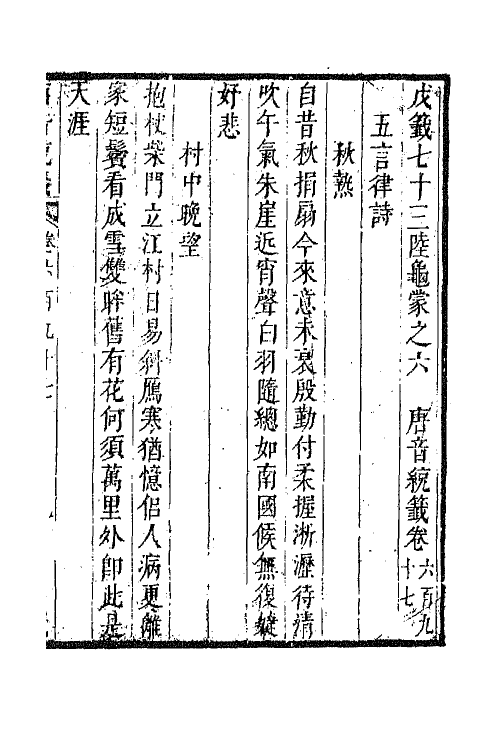 戊籤七十三陸龜蒙之六　唐音統籤卷六百九十七
五言律詩
秋熱
自昔秋捐扇今來意未衰殷勤付柔握淅瀝待清
吹午氣朱崖近宵聲白羽隨總如南國候無復婕
好悲
村中晚望
抱杖柴門立江村日易斜鴈寒猶憶侶人病更離
家短鬢看成雪雙眸舊有花何須萬里外即此是
天涯
卷六百九十七